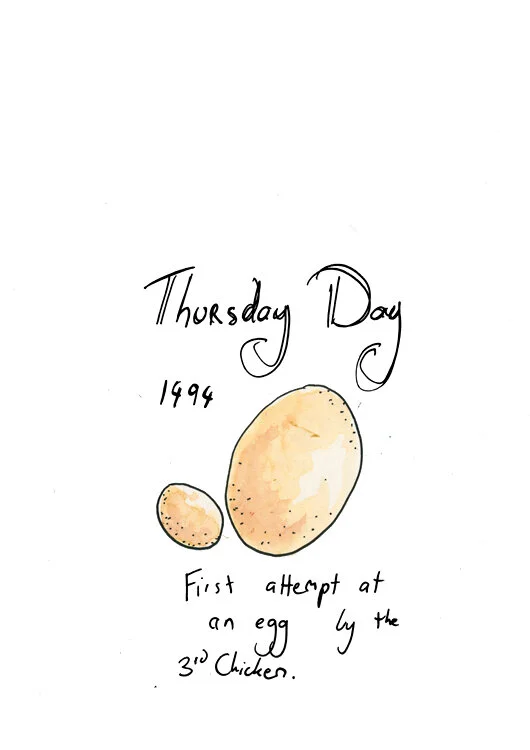 Thursday Day
1994
First attempt at
an egg by the
3rd Chicken.